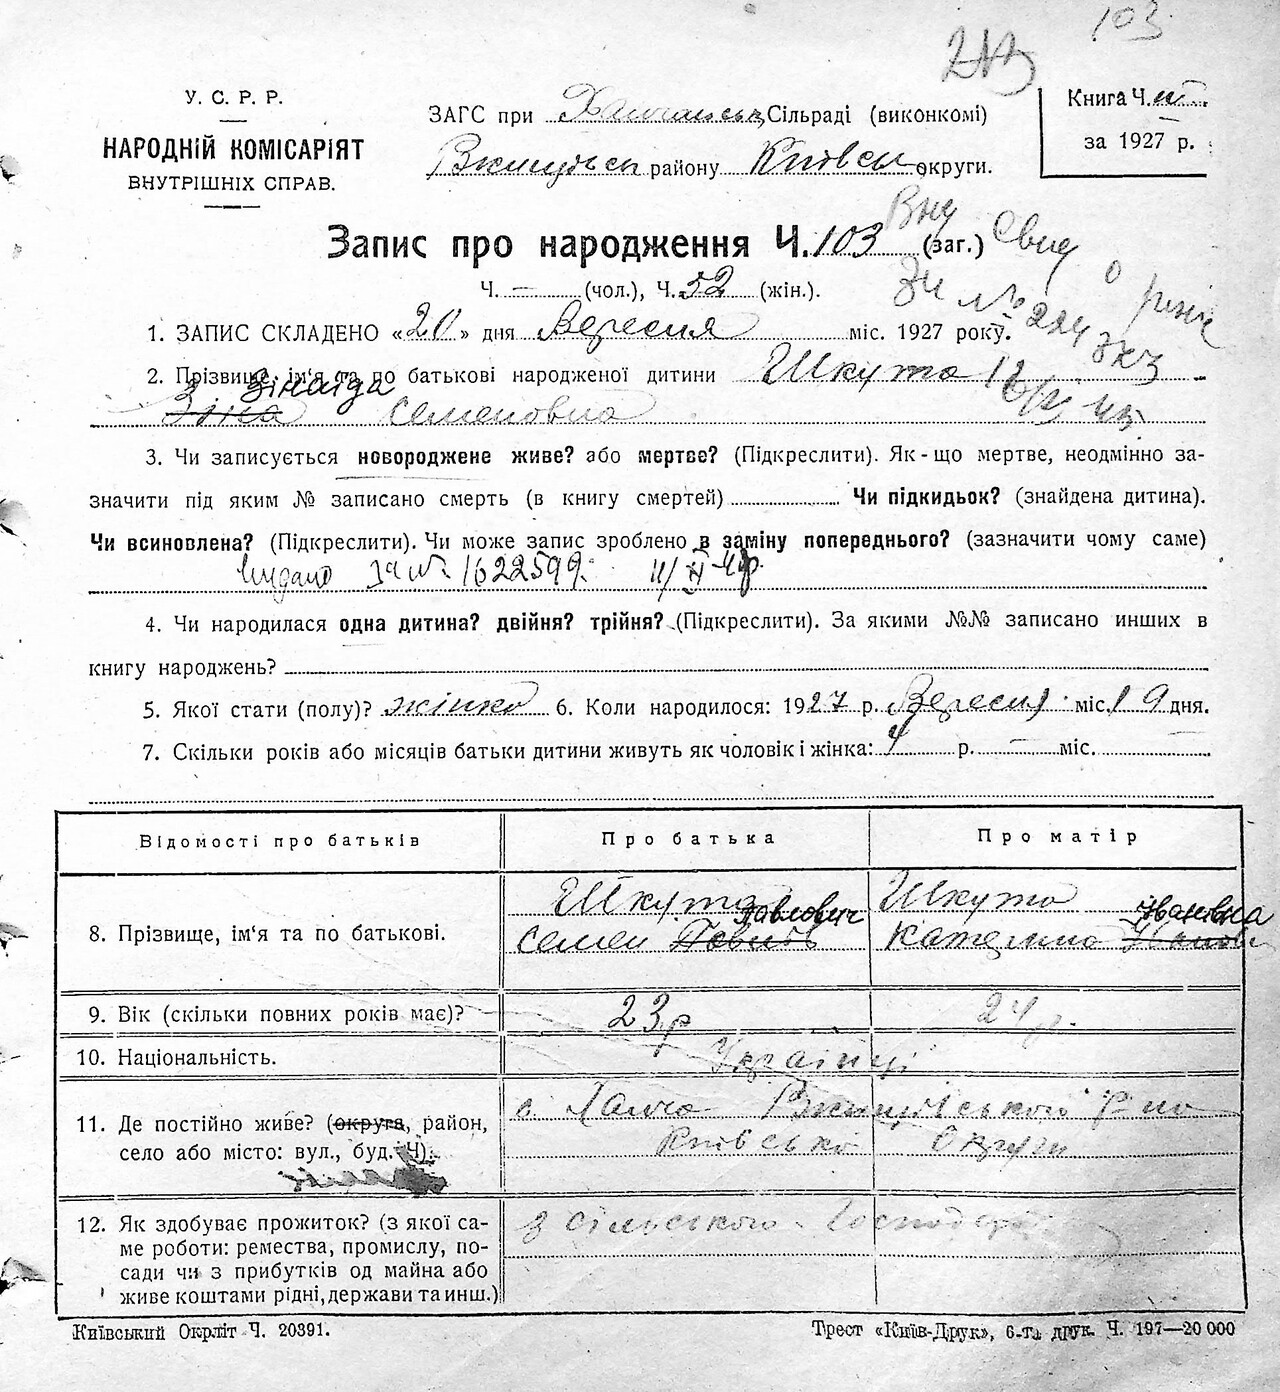 103
У. С. Р. Р.
НАРОДНІЙ КОМІСАРІЯТ
ВНУТРІШНІХ СПРАВ.
ЗАГС при Халчанськ Сільраді (виконкомі)
району Київськ округи.
Книга Ч. III
за 1927 р.
Запис про народження Ч. 103 (заг.)
Ч. — (чол.), Ч. 52 (жін.).
1. ЗАПИС СКЛАДЕНО «20» дня Вересня міс. 1927 року.
2. Прізвище, ім'я та по батькові народженої дитини Шкута
Зінаїда
Зіна Семеновна
3. Чи записується новороджене живе? або мертве? (Підкреслити). Як-що мертве, неодмінно за-
значити під яким № записано смерть (в книгу смертей) Чи підкидьок? (знайдена дитина).
Чи всиновлена? (Підкреслити). Чи може запис зроблено в заміну попереднього? (зазначити чому саме)
видано 1622599.
4. Чи народилася одна дитина? двійня? трійня? (Підкреслити). За якими №№ записано инших в
книгу народжень?
5. Якої стати (полу)? жінко 6. Коли народилося: 1927 р. Вересня міс. 19 дня.
7. Скільки років або місяців батьки дитини живуть як чоловік і жінка: 4 р. — міс. —
Відомості про батьків Про батька Про матір
8. Прізвище, ім'я та по батькові.
Шкута Павлович
Семен
Шкута Іванівна
Катерина
9. Вік (скільки повних років має)? 23 р 24 р.
10. Національність. Українці
11. Де постійно живе? (округа, район,
село або місто: вул., буд. Ч).
с. Халча Ржищівського р-но
Київсько Округи
12. Як здобуває прожиток? (з якої са-
ме роботи: ремества, промислу, по-
сади чи з прибутків од майна або
живе коштами рідні, держави та инш.)
з сільського
Київський Окрліт Ч. 20391.
Трест «Київ-Друк», 6-та друк. Ч. 197—20 000